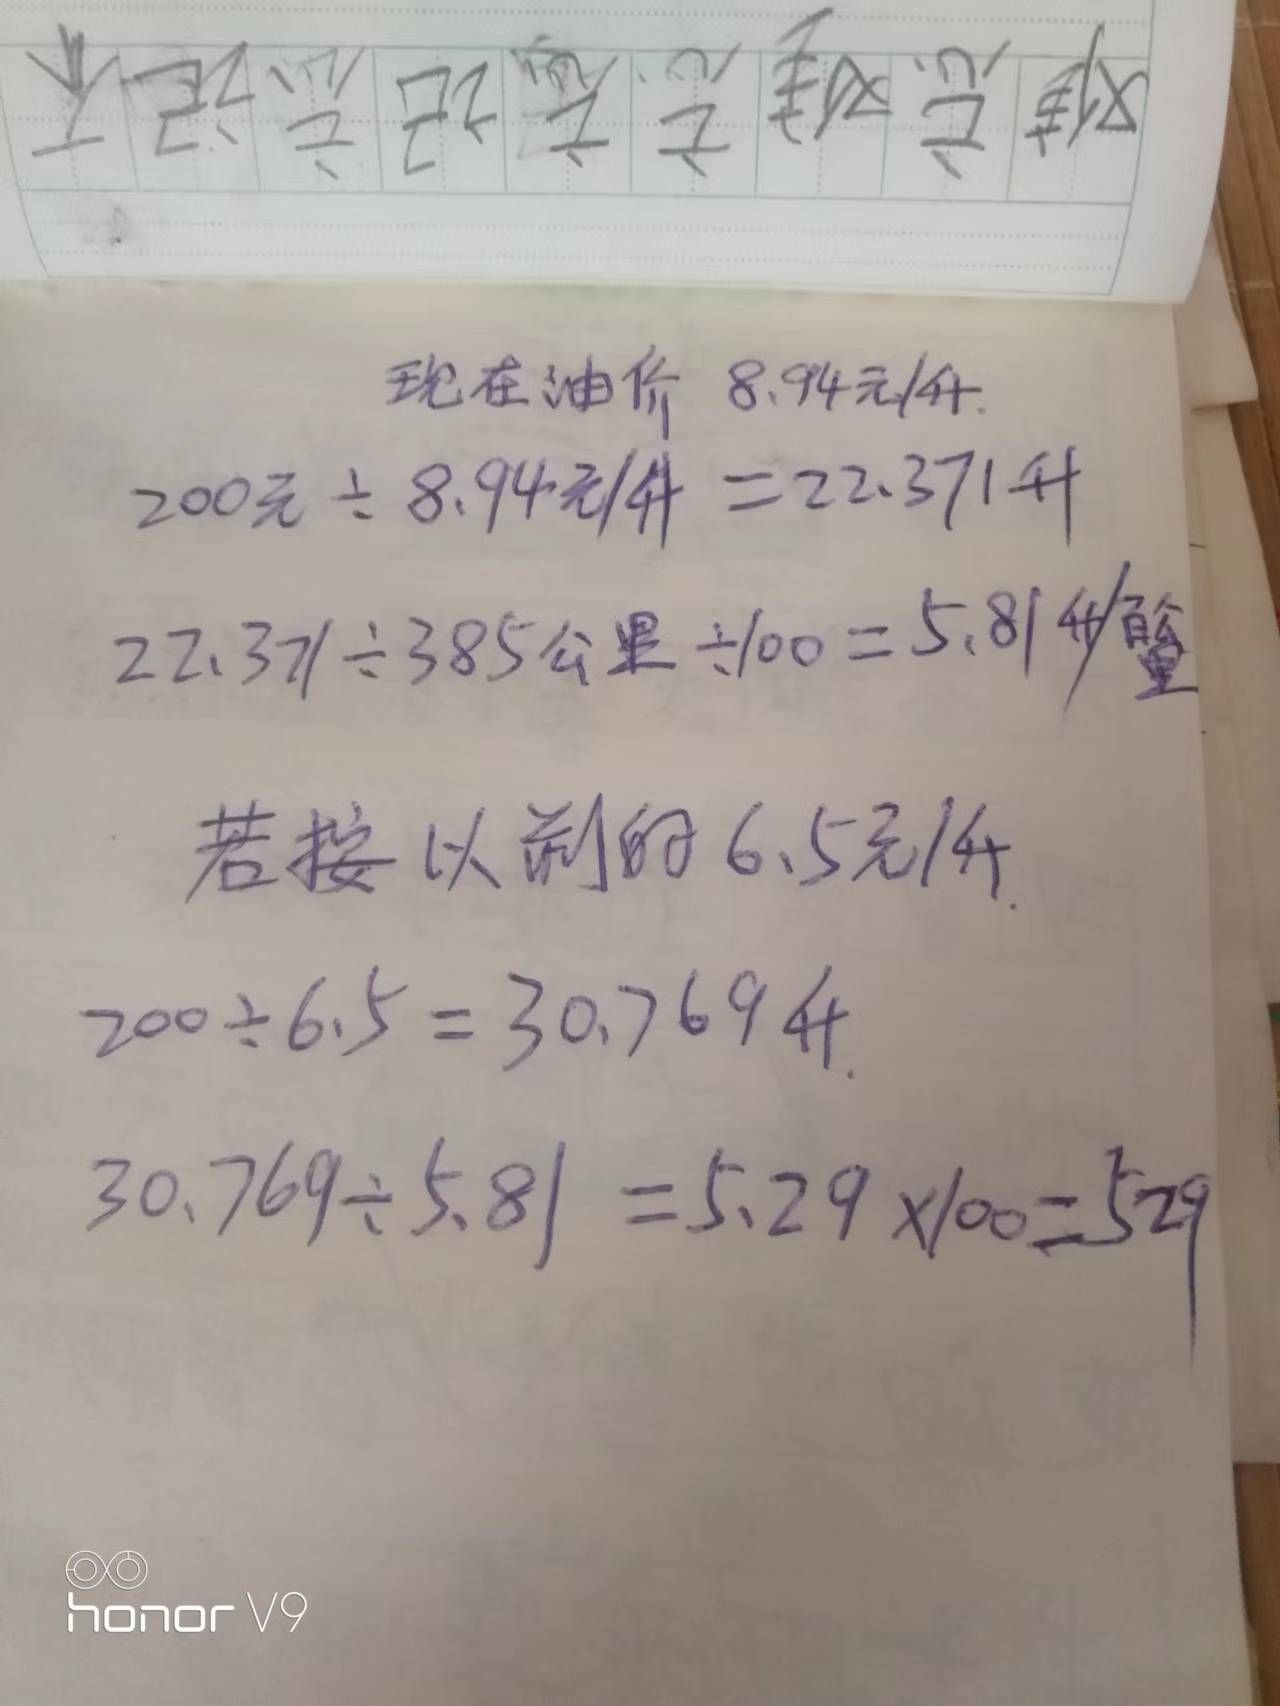 现在油价 8.94元/升.
200元÷8.94元/升=22.371升
22.371÷385公里÷100=5.81升/百
若按以前的6.5元/升.
200÷6.5=30.769升.
30.769÷5.81=5.29×100=529
honor V9